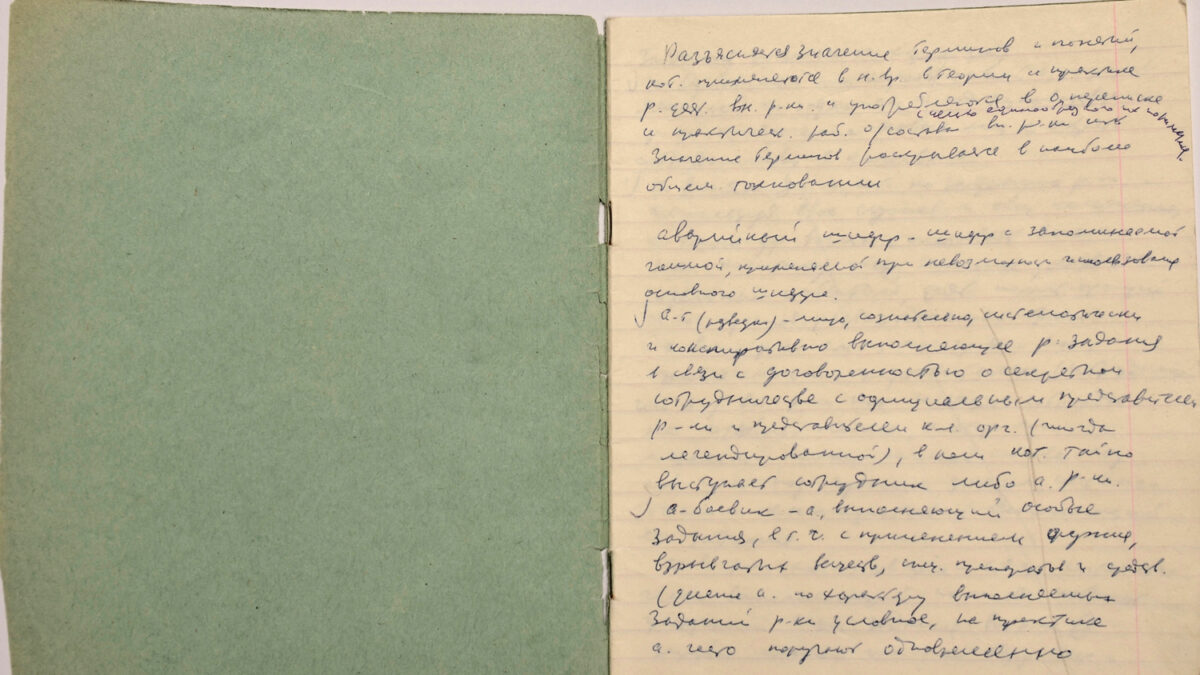 Разъясняется значение терминов и понятий,
кот. применяются в н.вр. в теории и практике
р. деят. вн. р-ки. и употребляются в оп. переписке
с целью единообразного их понимания.
и практическ. раб. о/состава вн. р-ки
Значение терминов раскрывается в наиболее
общем толковании
аварийный шифр - шифр с запоминаемой
гаммой, применяемой при невозможности использования
основного шифра.
а-т (разведки) - лицо, сознательно, систематически
и конспиративно выполняющее р. задания
в связи с договоренностью о секретном
сотрудничестве с официальным представителем
р-ки и представителем к-л. орг. (иногда
легендированной), в кот. тайно
выступает сотрудник либо а. р-ки.
а-боевик - а, выполняющий особые
задания, в т.ч. с применением оружия,
взрывчатых веществ, спец. препаратов и средств.
(деление а. по характеру выполняемых
заданий р-ки условное, на практике
а. часто поручают одновременно